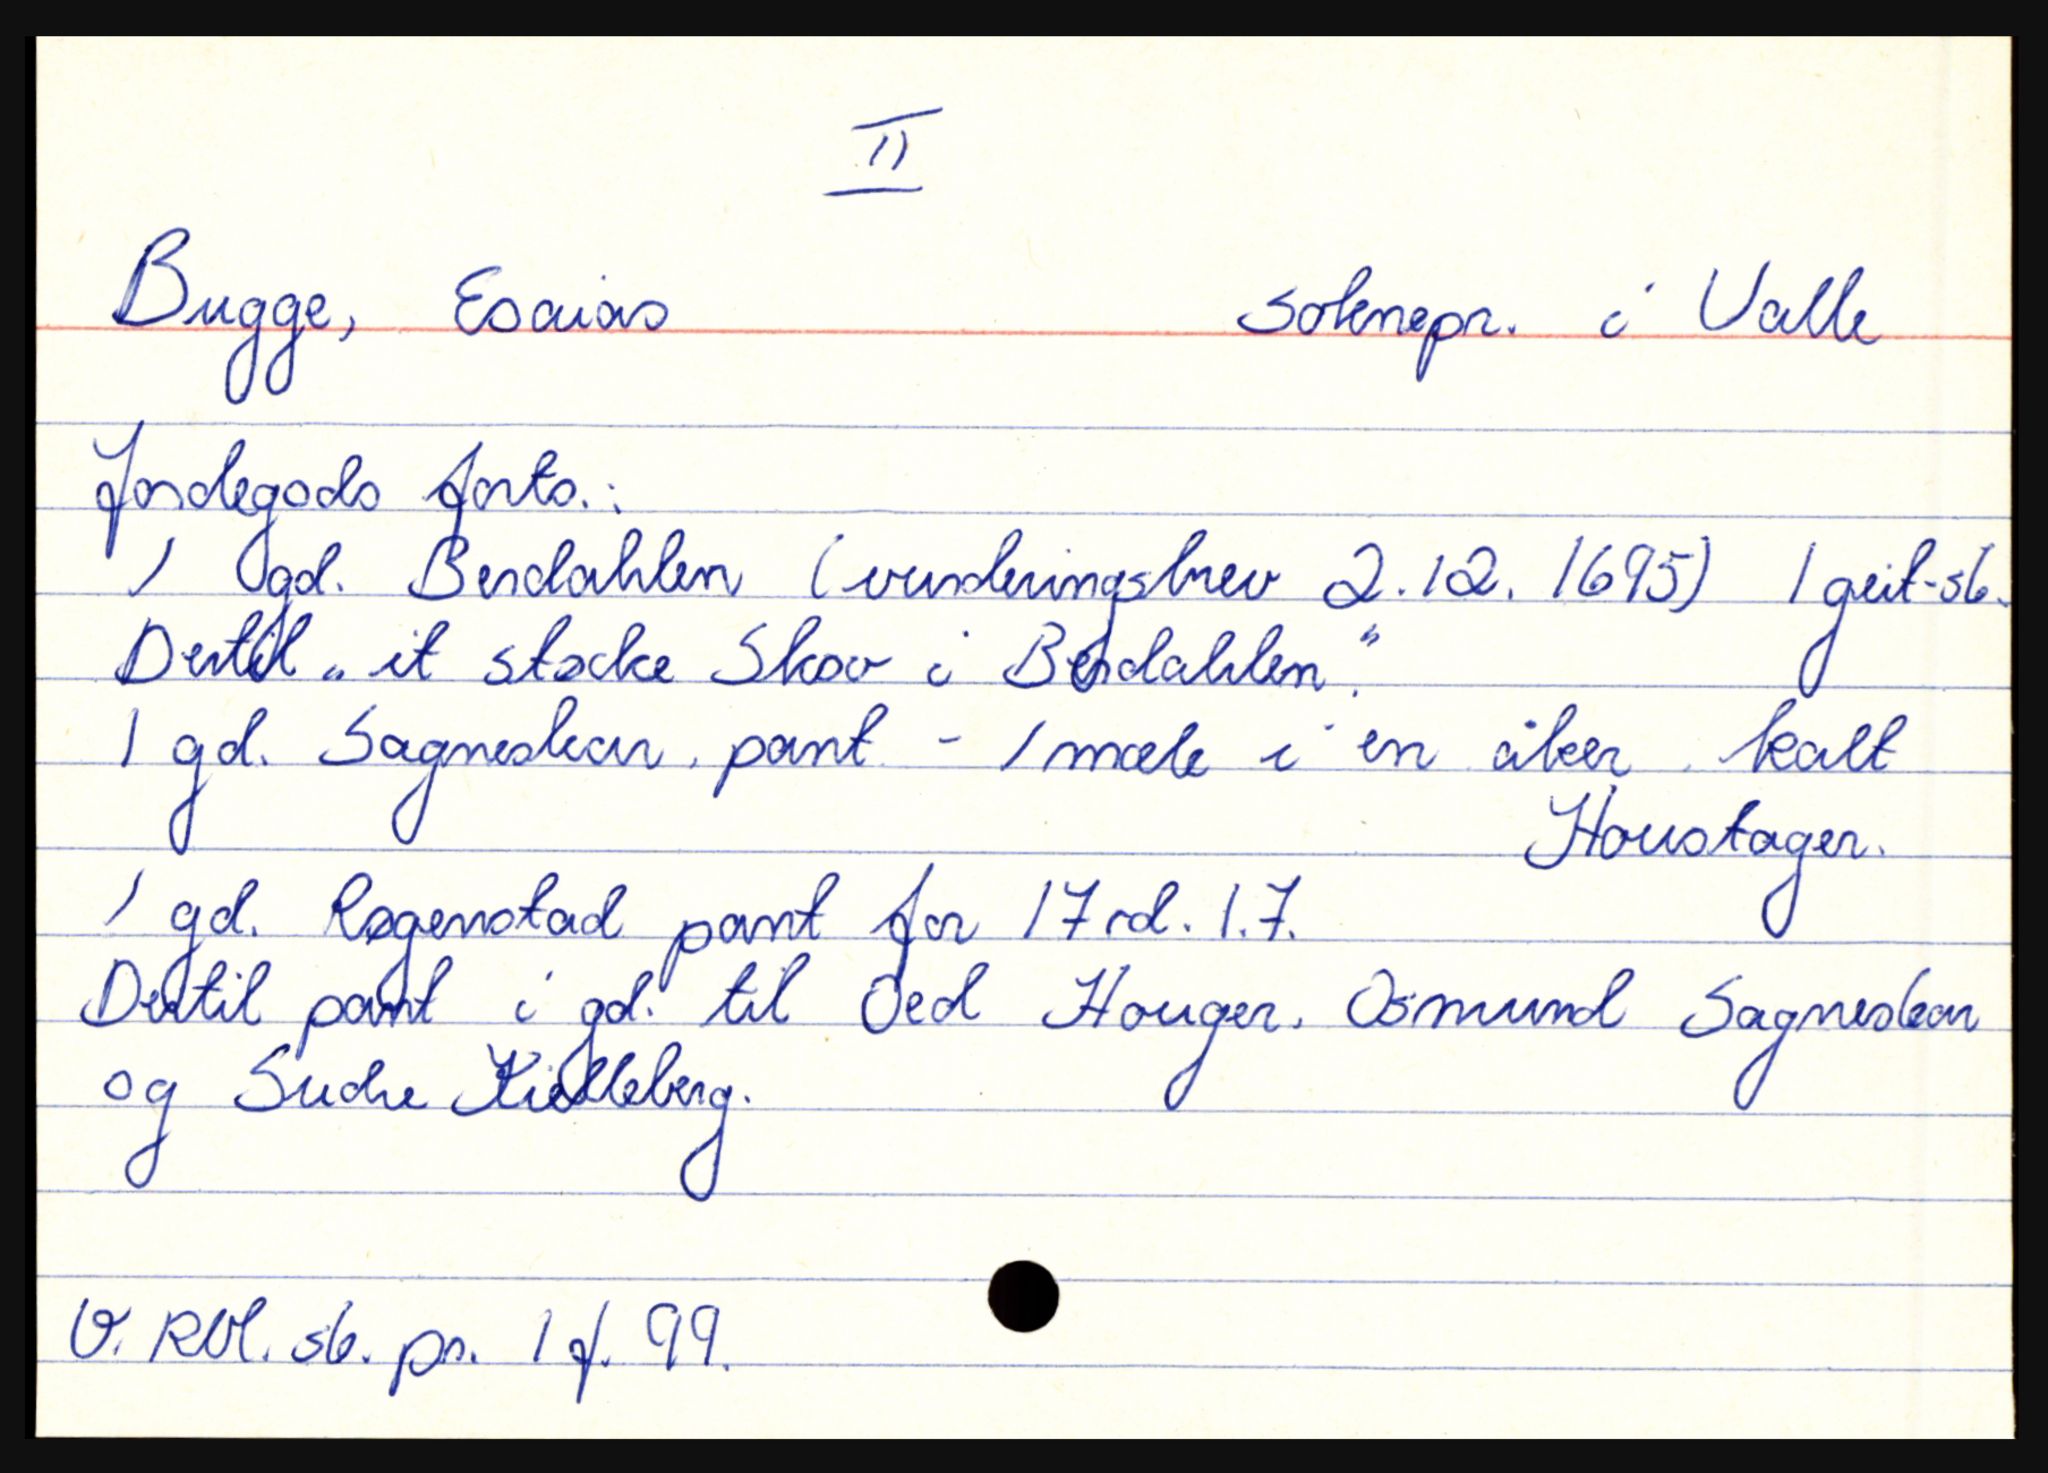 II
Bugge, Esaias soknepr. i Valle
Jordegods forts.:
1 gd. Berdahlen (vurderingsbrev 2.12.1695) 1 geit-sk.
Dertil „it støcke Skov i Berdahlen".
1 gd. Sagneskar, pant - 1 mæle i en åker kalt
Houstager.
1 gd. Røgenstad pant for 17 rd. 1.7.
Dertil pant i gd. til Oed Houger, Osmund Sagneskar
og Sucke Kielleberg.
V. RVl. sk. pr. 1 f. 99.